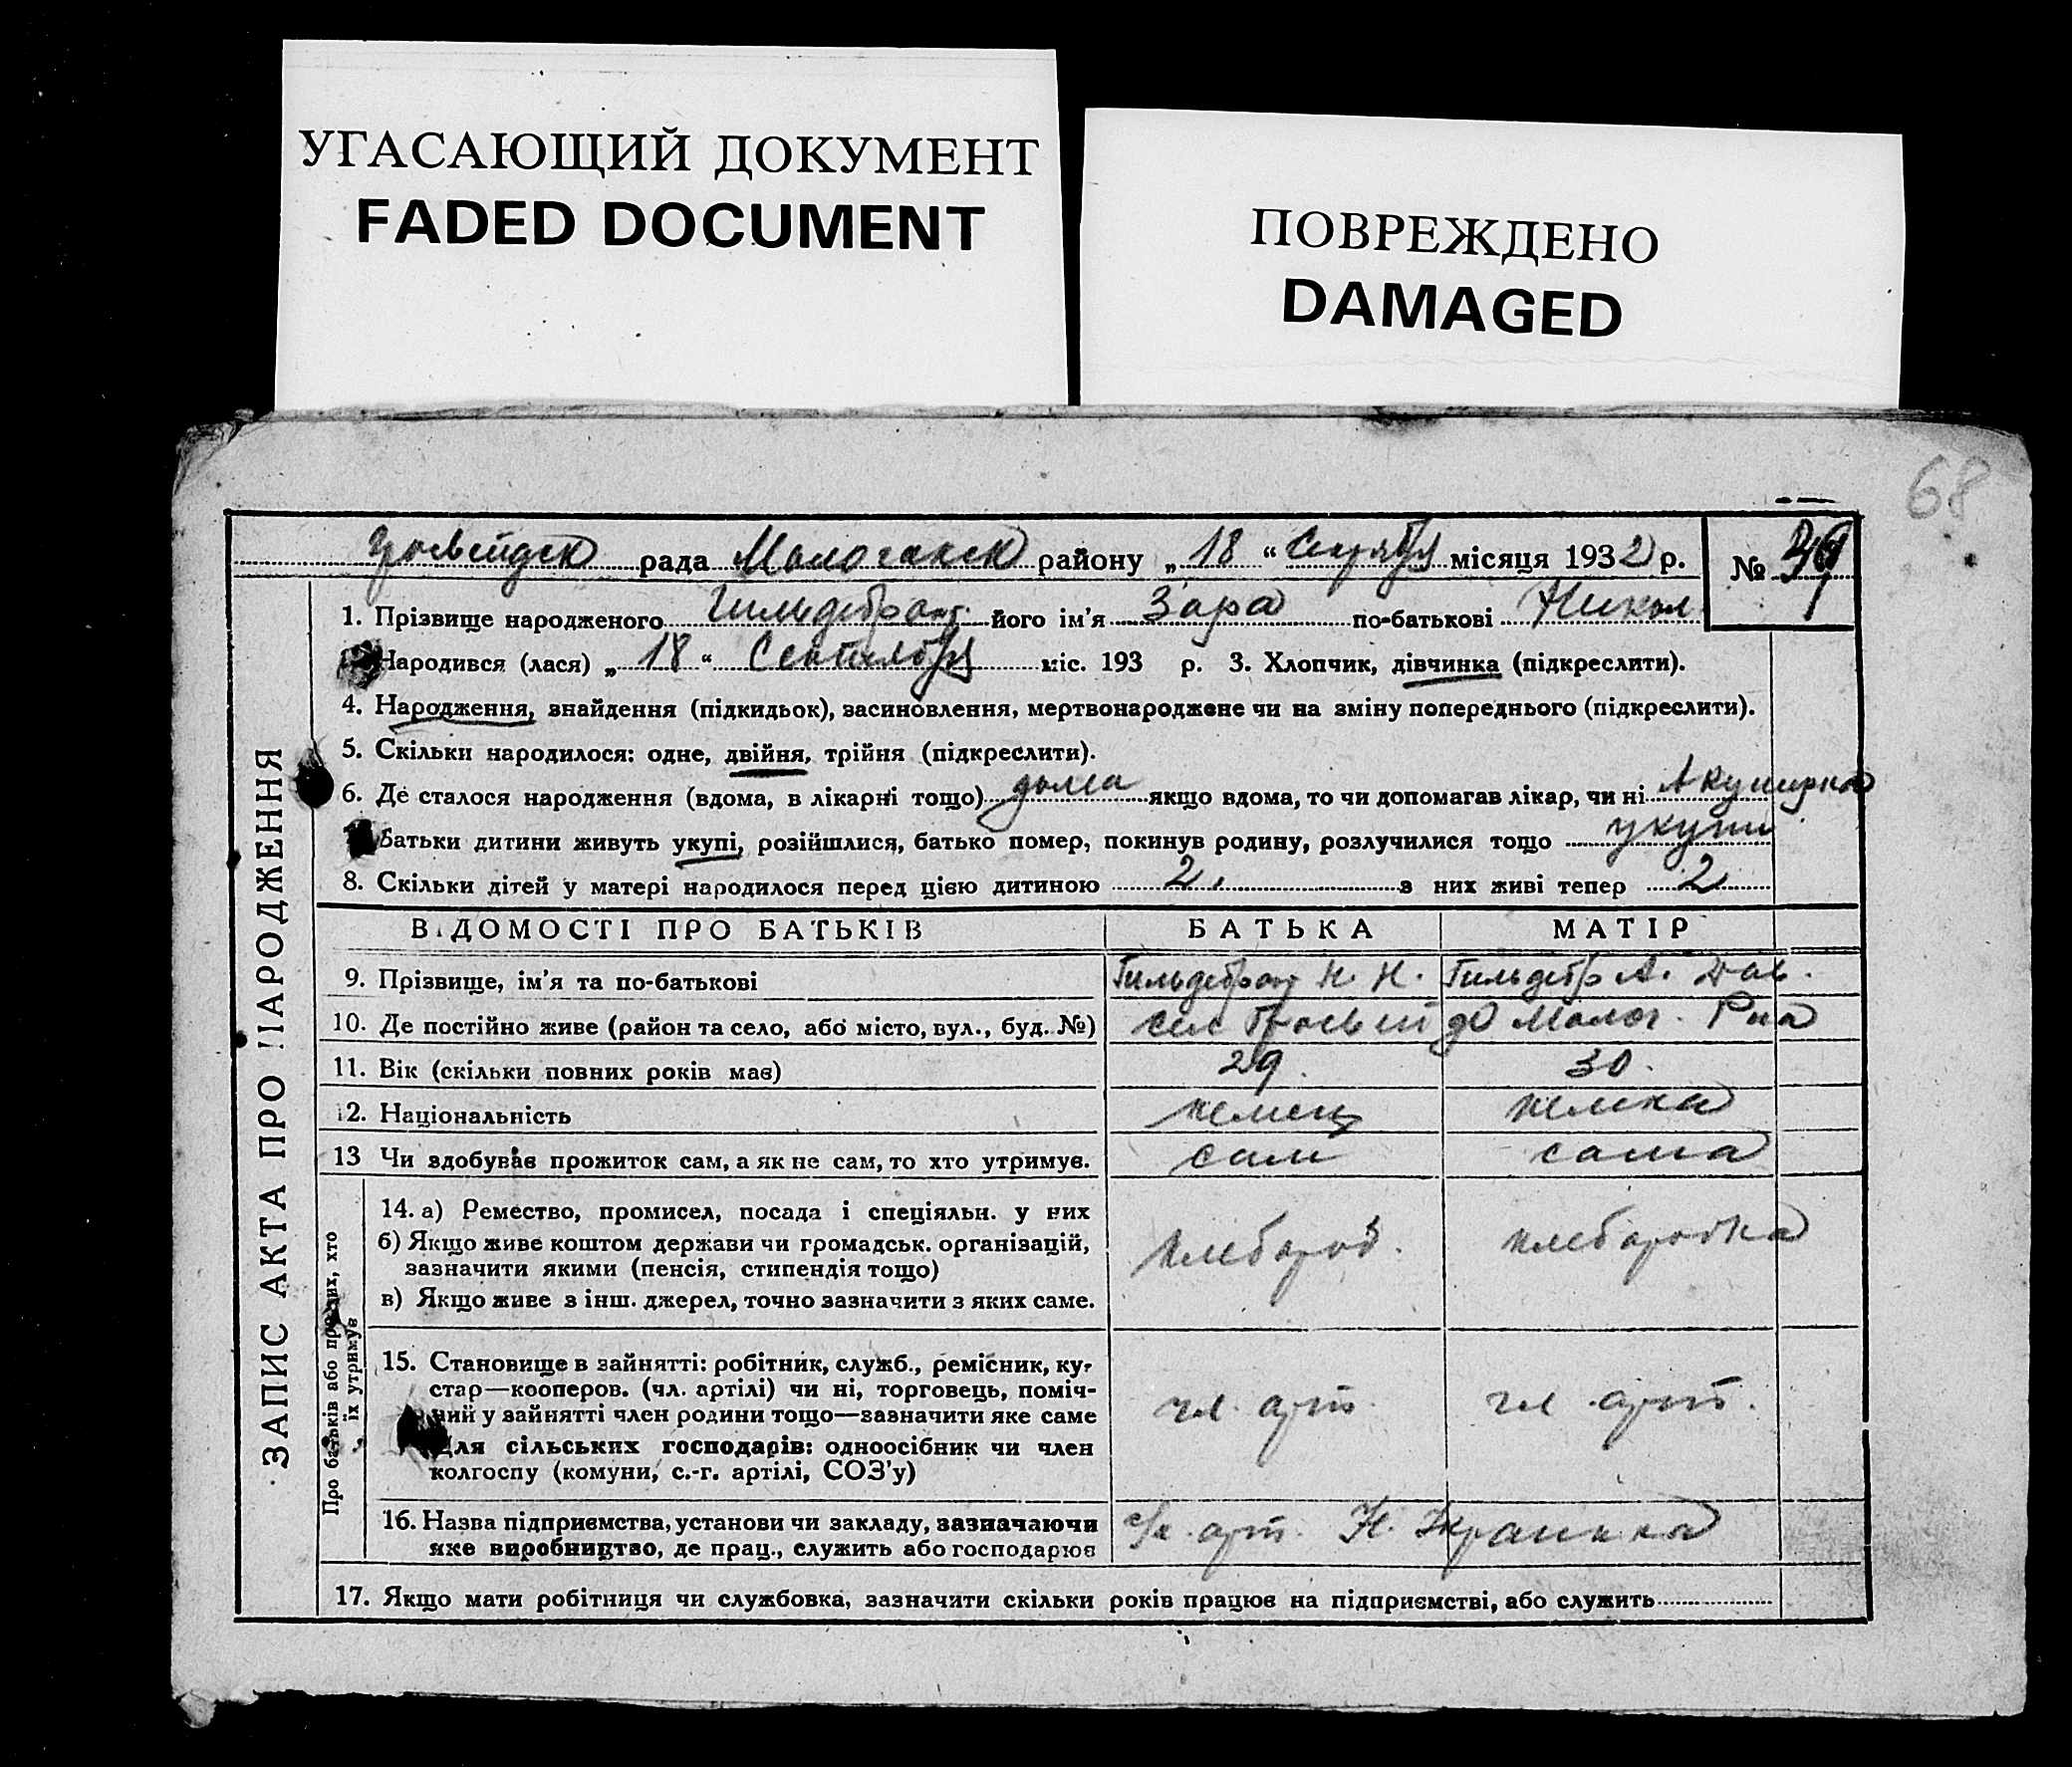 УГАСАЮЩИЙ ДОКУМЕНТ
FADED DOCUMENT
ПОВРЕЖДЕНО
DAMAGED
68
рада Молочанск району „ 18 “ місяця 1932 р. №
1. Прізвище народженого Гильдебрант його ім'я Зара по-батькові Никол
Народився (лася) „ 18 “ Сентября міс. 193 р. 3. Хлопчик, дівчинка (підкреслити).
4. Народження, знайдення (підкидьок), засиновлення, мертвонароджене чи на зміну попереднього (підкреслити).
5. Скільки народилося: одне, двійня, трійня (підкреслити).
6. Де сталося народження (вдома, в лікарні тощо) дома якщо вдома, то чи допомагав лікар, чи ні Акушерка
Батьки дитини живуть укупі, розійшлися, батько помер, покинув родину, розлучилися тощо укупи
8. Скільки дітей у матері народилося перед цією дитиною 2. з них живі тепер 2
ЗАПИС АКТА ПРО НАРОДЖЕННЯ
ВІДОМОСТІ ПРО БАТЬКІВ БАТЬКА МАТІР
9. Прізвище, ім'я та по-батькові Гильдебрант Н. Н. Гильдебр А. Дав.
10. Де постійно живе (район та село, або місто, вул., буд. №) Молоч. Р-на
11. Вік (скільки повних років має) 29. 30.
12. Національність немец немка
13 Чи здобував прожиток сам, а як не сам, то хто утримує. сам сама
Про батьків або про тих, хто їх утримує
14. а) Ремество, промисел, посада і спеціяльн. у них хлебороб. хлеборобка
б) Якщо живе коштом держави чи громадськ. організацій,
зазначити якими (пенсія, стипендія тощо)
в) Якщо живе з інш. джерел, точно зазначити з яких саме.
15. Становище в зайнятті: робітник, служб., ремісник, ку-
стар—кооперов. (чл. артілі) чи ні, торговець, поміч-
ний у зайнятті член родини тощо—зазначити яке саме чл. арт. чл. арт.
Для сільських господарів: одноосібник чи член
колгоспу (комуни, с.-г. артілі, СОЗ'у)
16. Назва підприємства, установи чи закладу, зазначаючи с/х. арт. Н. Украинка
яке виробництво, де прац., служить або господарює
17. Якщо мати робітниця чи службовка, зазначити скільки років працює на підприємстві, або служить